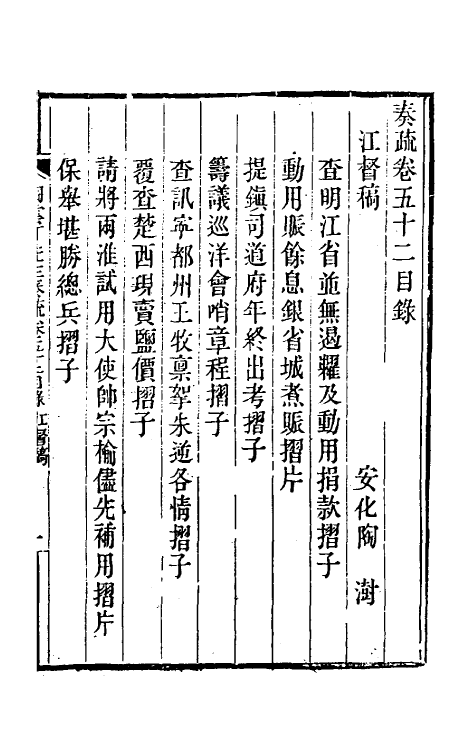 奏疏卷五十二目錄
江督稿　安化陶　澍
查明江省並無遏糶及動用捐款摺子
動用賑餘息銀省城煮賑摺片
提鎭司道府年終出考摺子
籌議巡洋會哨章程摺子
查訊寧都州王牧稟拏朱逆各情摺子
覆查楚西現賣鹽價摺子
請將兩淮試用大使帥宗楡儘先補用摺片
保舉堪勝總兵摺子